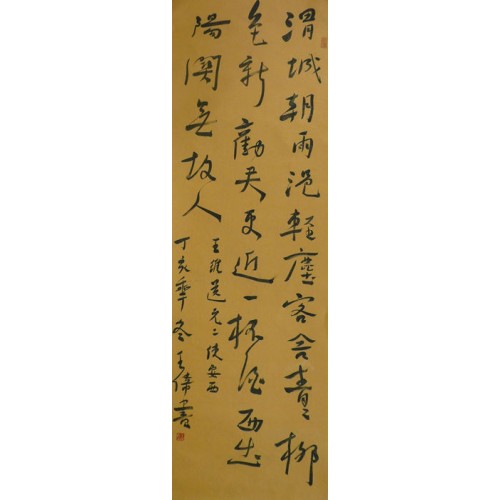 渭城朝雨浥輕塵客舍青々柳
色新勸君更近一杯酒西出
陽関無故人
王維送元二使安西
丁亥秊冬王偉書